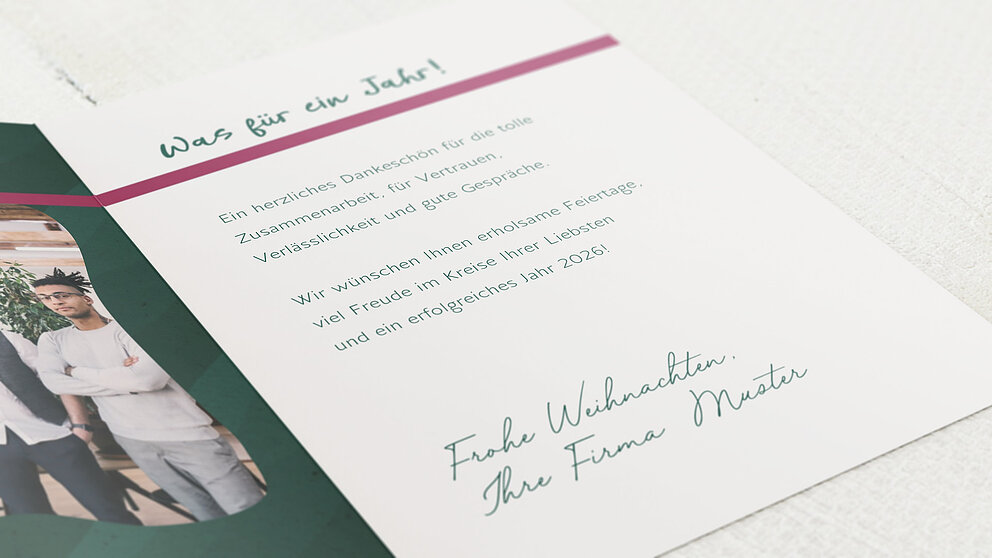 Was für ein Jahr!
Ein herzliches Dankeschön für die tolle
Zusammenarbeit, für Vertrauen,
Verlässlichkeit und gute Gespräche.
Wir wünschen Ihnen erholsame Feiertage,
viel Freude im Kreise Ihrer Liebsten
und ein erfolgreiches Jahr 2026!
Frohe Weihnachten,
Ihre Firma Muster